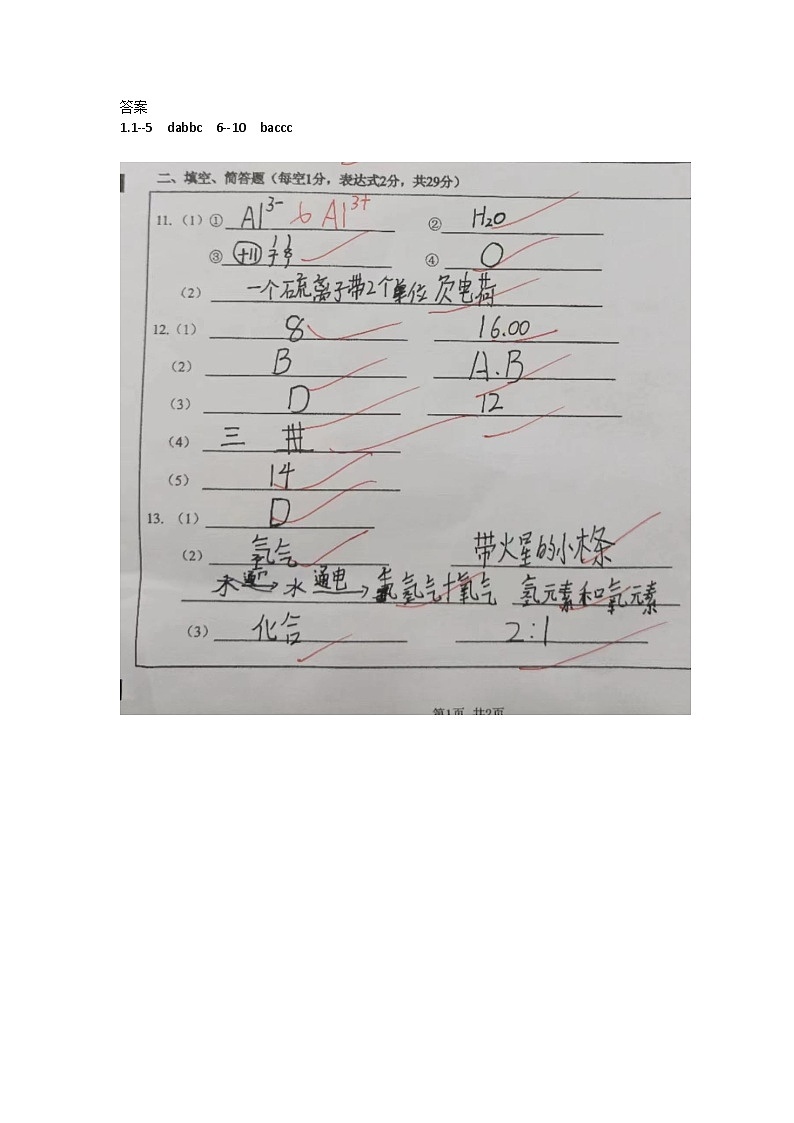 答案
1.1--5 dabbc 6--10 baccc
二、填空、简答题（每空1分，表达式2分，共29分）
11.（1）① Al3- Al3+ ② H2O
③ +11 2 8 ④ O
（2） 一个硫离子带2个单位负电荷
12.（1） 8 16.00
（2） B A.B
（3） D 12
（4） 三
（5） 14
13.（1） D
（2） 氧气 带火星的小木条
水 通电→ 氢气+氧气 氢元素和氧元素
（3） 化合 2:1
第1页 共2页